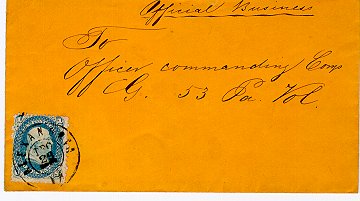 Official Business
To
Officer commanding Comp
G. 53 Pa. Vol.